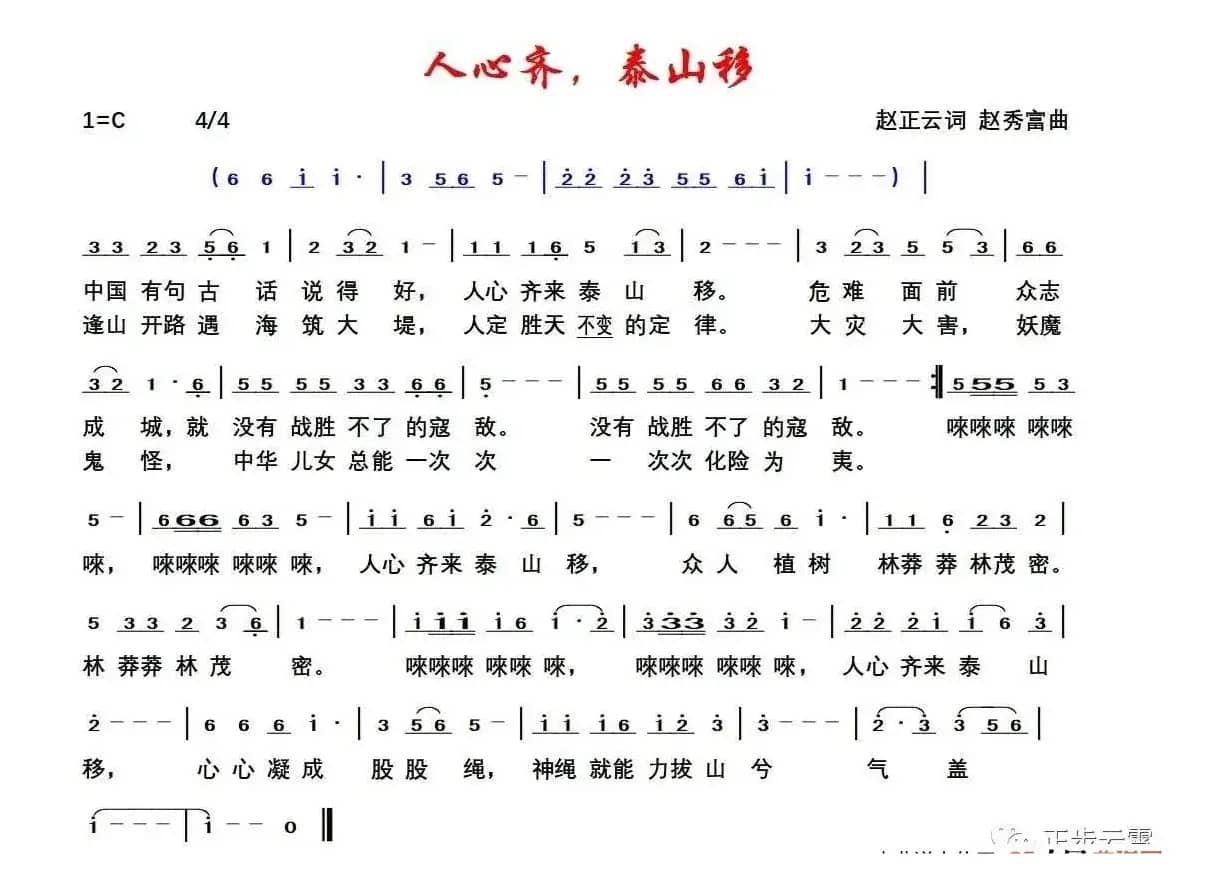 人心齐，泰山移
1=C 4/4 赵正云词 赵秀富曲
(6 6 i i · | 3 56 5 - | 22 23 55 6i | i - - - ) |
33 23 56 1 | 2 32 1 - | 11 16 5 13 | 2 - - - | 3 23 5 5 3 | 66
中国 有句 古 话 说 得 好， 人心 齐来 泰 山 移。 危 难 面 前 众志
逢山 开路 遇 海 筑 大 堤， 人定 胜天 不变 的定 律。 大 灾 大 害， 妖魔
32 1 · 6 | 55 55 33 66 | 5 - - - | 55 55 66 32 | 1 - - - :| 555 53
成 城，就 没有 战胜 不了 的寇 敌。 没有 战胜 不了 的寇 敌。 唻唻唻 唻唻
鬼 怪， 中华 儿女 总能 一次 次 一 次次 化险 为 夷。
5 - | 666 63 5 - | ii 6i 2 · 6 | 5 - - - | 6 65 6 i · | 11 6 23 2 |
唻， 唻唻唻 唻唻 唻， 人心 齐来 泰 山 移， 众 人 植 树 林莽 莽 林茂 密。
5 33 2 3 6 | 1 - - - | iii i6 i · 2 | 333 32 i - | 22 2i i 6 3 |
林 莽莽 林 茂 密。 唻唻唻 唻唻 唻， 唻唻唻 唻唻 唻， 人心 齐来 泰 山
2 - - - | 6 6 6 i · | 3 56 5 - | ii i6 i2 3 | 3 - - - | 2 · 3 3 56 |
移， 心 心 凝 成 股 股 绳， 神绳 就能 力拔 山 兮 气 盖
i - - - | i - - 0 ‖